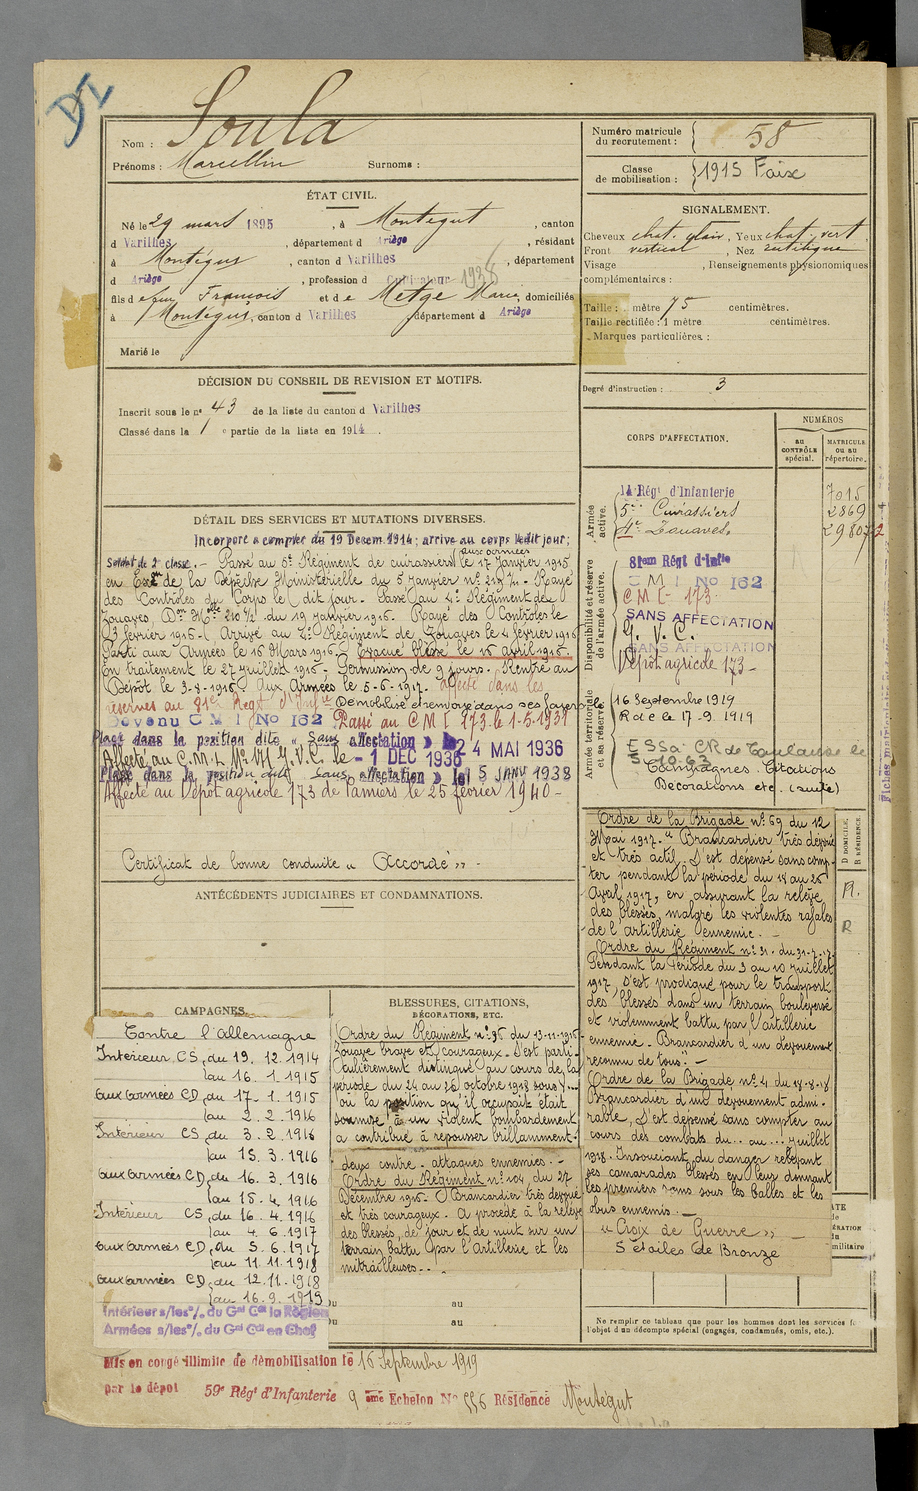 DI
Nom : Soula
Prénoms : Marcellin Surnoms :
Numéro matricule du recrutement : 58
Classe de mobilisation : 1915 Foix
ÉTAT CIVIL.
Né le 29 mars 1895, à Montégut, canton
d Varilhes, département d Ariège, résidant
à Montégut, canton d Varilhes, département
d Ariège, profession d Cultivateur 1938
fils de feu François et de Metge Marie, domiciliés
à Montégut, canton d Varilhes, département d Ariège
Marié le
SIGNALEMENT.
Cheveux chat. clair, Yeux chat. vert
Front vertical, Nez rectiligne
Visage , Renseignements physionomiques
complémentaires :
Taille : mètre 75 centimètres.
Taille rectifiée : 1 mètre centimètres.
Marques particulières :
Degré d'instruction : 3
DÉCISION DU CONSEIL DE REVISION ET MOTIFS.
Inscrit sous le n° 43 de la liste du canton d Varilhes
Classé dans la 1e partie de la liste en 1914.
CORPS D'AFFECTATION.
NUMÉROS
au CONTRÔLE spécial.
MATRICULE ou au répertoire.
Armée active.
14 Régt d'Infanterie 7015
5me Cuirassiers 2869
4e Zouaves. 29807
Disponibilité et réserve de l'armée active.
81em Régt d'Infie
C M I No 162
CM I- 173
SANS AFFECTATION
G. V. C.
SANS AFFECTATION
Dépôt agricole 173-
Armée territoriale et sa réserve.
16 Septembre 1919
R d e le 17-9. 1919
Campagnes. Citations
Décorations etc. (suite)
DÉTAIL DES SERVICES ET MUTATIONS DIVERSES.
Incorporé à compter du 19 Décem. 1914; arrivé au corps le dit jour;
Soldat de 2e classe. - Passé au 5e Régiment de cuirassiers aux armées le 17 Janvier 1915
en Exon de la Dépêche Ministérielle du 5 Janvier Rayé
des Contrôles du Corps le dit jour. Passé au 4e Régiment de
Zouaves, du 19 Janvier 1916. Rayé des Contrôles le
3 février 1916. Arrivé au 4e Régiment de Zouaves le 4 février 1916
Parti aux Armées le 16 Mars 1916. Evacué blessé le 16 avril 1916.
En traitement le 27 Juillet 1916. Permission de 9 jours. Rentré au
Dépôt le 3-9-1916. Aux Armées le 5-6-1917. affecté dans les
réserves au 81e Régt d'Infie Démobilisé et renvoyé dans ses foyers le
Devenu C M I No 162 Passé au C M I 173 le 1-5-1931
Placé dans la position dite « Sans affectation » le 24 MAI 1936
Affecté au C.M.I. G.V.C. le -1 DEC 1936
Placé dans la position dite "Sans affectation" le 15 JANV 1938
Affecté au Dépôt agricole 173 de Pamiers le 25 février 1940-
Certificat de bonne conduite « Accordé ». -
ANTÉCÉDENTS JUDICIAIRES ET CONDAMNATIONS.
D DOMICILE. R RÉSIDENCE.
R.
R
Ordre de la Brigade n° 69 du 12
Mai 1917. " Brancardier très dévoué
et très actif. S'est dépensé sans comp-
ter pendant la période du 18 au 26
Avril 1917, en assurant la relève
des blessés, malgré les violentes rafales
de l'artillerie ennemie. -
Ordre du Régiment n° 31 du 31-7-17.
Pendant la Période du 3 au 10 Juillet
1917, s'est prodigué pour le transport
des blessés dans un terrain bouleversé
et violemment battu par l'artillerie
ennemie. Brancardier d'un dévouement
reconnu de tous". -
Ordre de la Brigade n° 4 du 18-8-18
Brancardier d'un dévouement admi-
rable, s'est dépensé sans compter au
cours des combats du.. au... Juillet
1918. Insouciant du danger relevant
ses camarades blessés en leur donnant
les premiers soins sous les balles et les
obus ennemis. -
« Croix de Guerre » -
5 étoiles de Bronze
CAMPAGNES.
Contre l'Allemagne
Intérieur CS, du 19. 12. 1914
au 16. 1. 1915
aux armées CD, du 17- 1. 1915
au 2. 2. 1916
Intérieur CS, du 3. 2. 1916
au 15. 3. 1916
aux armées CD, du 16. 3. 1916
au 15. 4. 1916
Intérieur CS, du 16. 4. 1916
au 4. 6. 1917
aux armées CD, du 5. 6. 1917
au 11. 11. 1918
aux armées CD, du 12. 11. 1918
au 16. 9. 1919
Intérieur s/les o/. du Gal Cdt la Région
Armées s/les o/. du Gal Cdt en Chef
BLESSURES, CITATIONS,
DÉCORATIONS, ETC.
Ordre du Régiment n° 96 du 13-11-1916
Zouave brave et courageux. S'est parti-
culièrement distingué au cours de la
période du 24 au 26 octobre 1916 sous V...
où la position qu'il occupait était
soumise à un violent bombardement
a contribué à repousser brillamment
deux contre-attaques ennemies. -
Ordre du Régiment n° 104, du 27
Décembre 1916. Brancardier très dévoué
et très courageux. A procédé à la relève
des blessés, de jour et de nuit sur un
terrain battu par l'Artillerie et les
mitrailleuses..
Du au
Du au
Ne remplir ce tableau que pour les hommes dont les services
l'objet d'un décompte spécial (engagés, condamnés, omis, etc.).
Mis en congé illimité de démobilisation le 16 Septembre 1919
par le dépôt 59e Régt d'Infanterie 9 ème Echelon No 556 Résidence Montégut